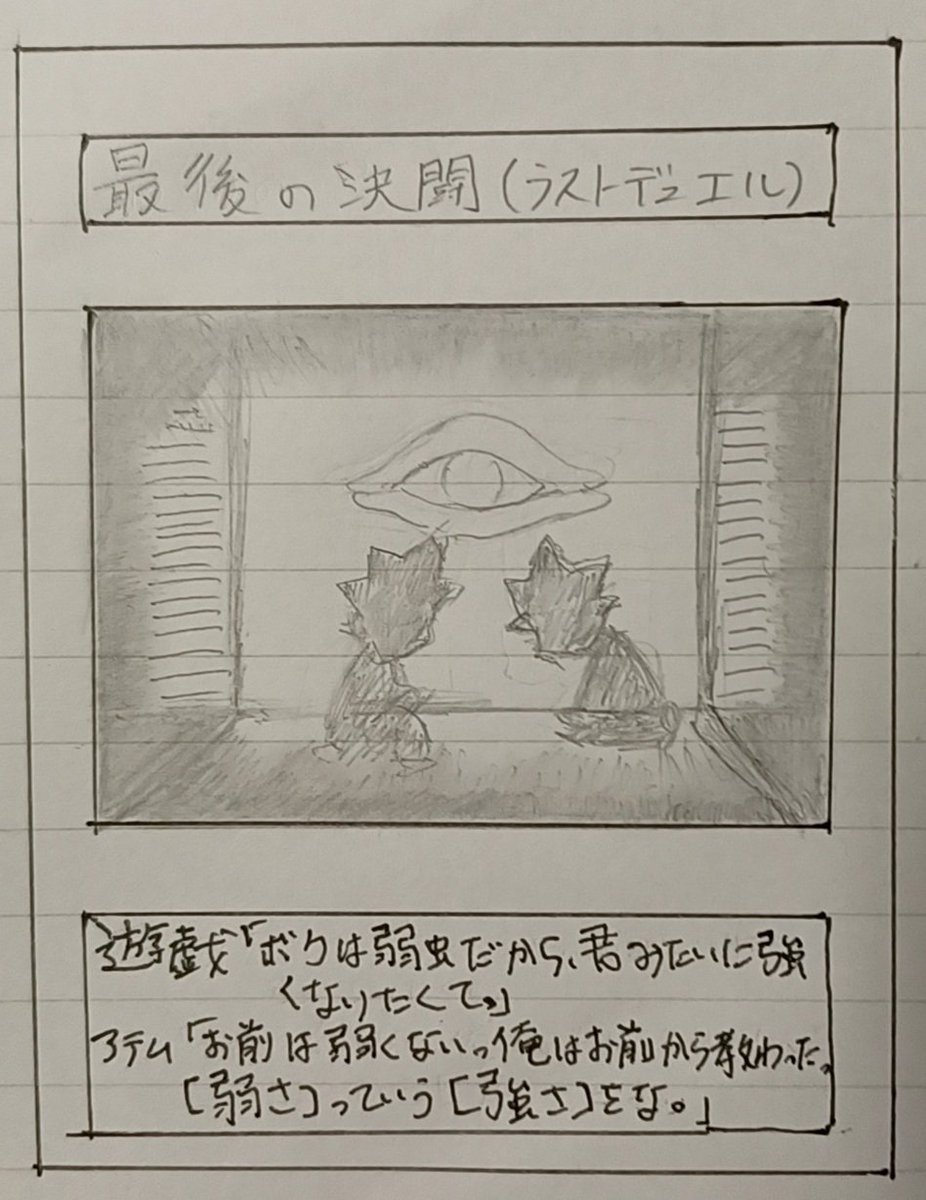 最後の決闘(ラストデュエル)
遊戯「ボクは弱虫だから、君みたいに強
くなりたくて。」
アテム「お前は弱くない。俺はお前から教わった。
[弱さ]っていう[強さ]をな。」